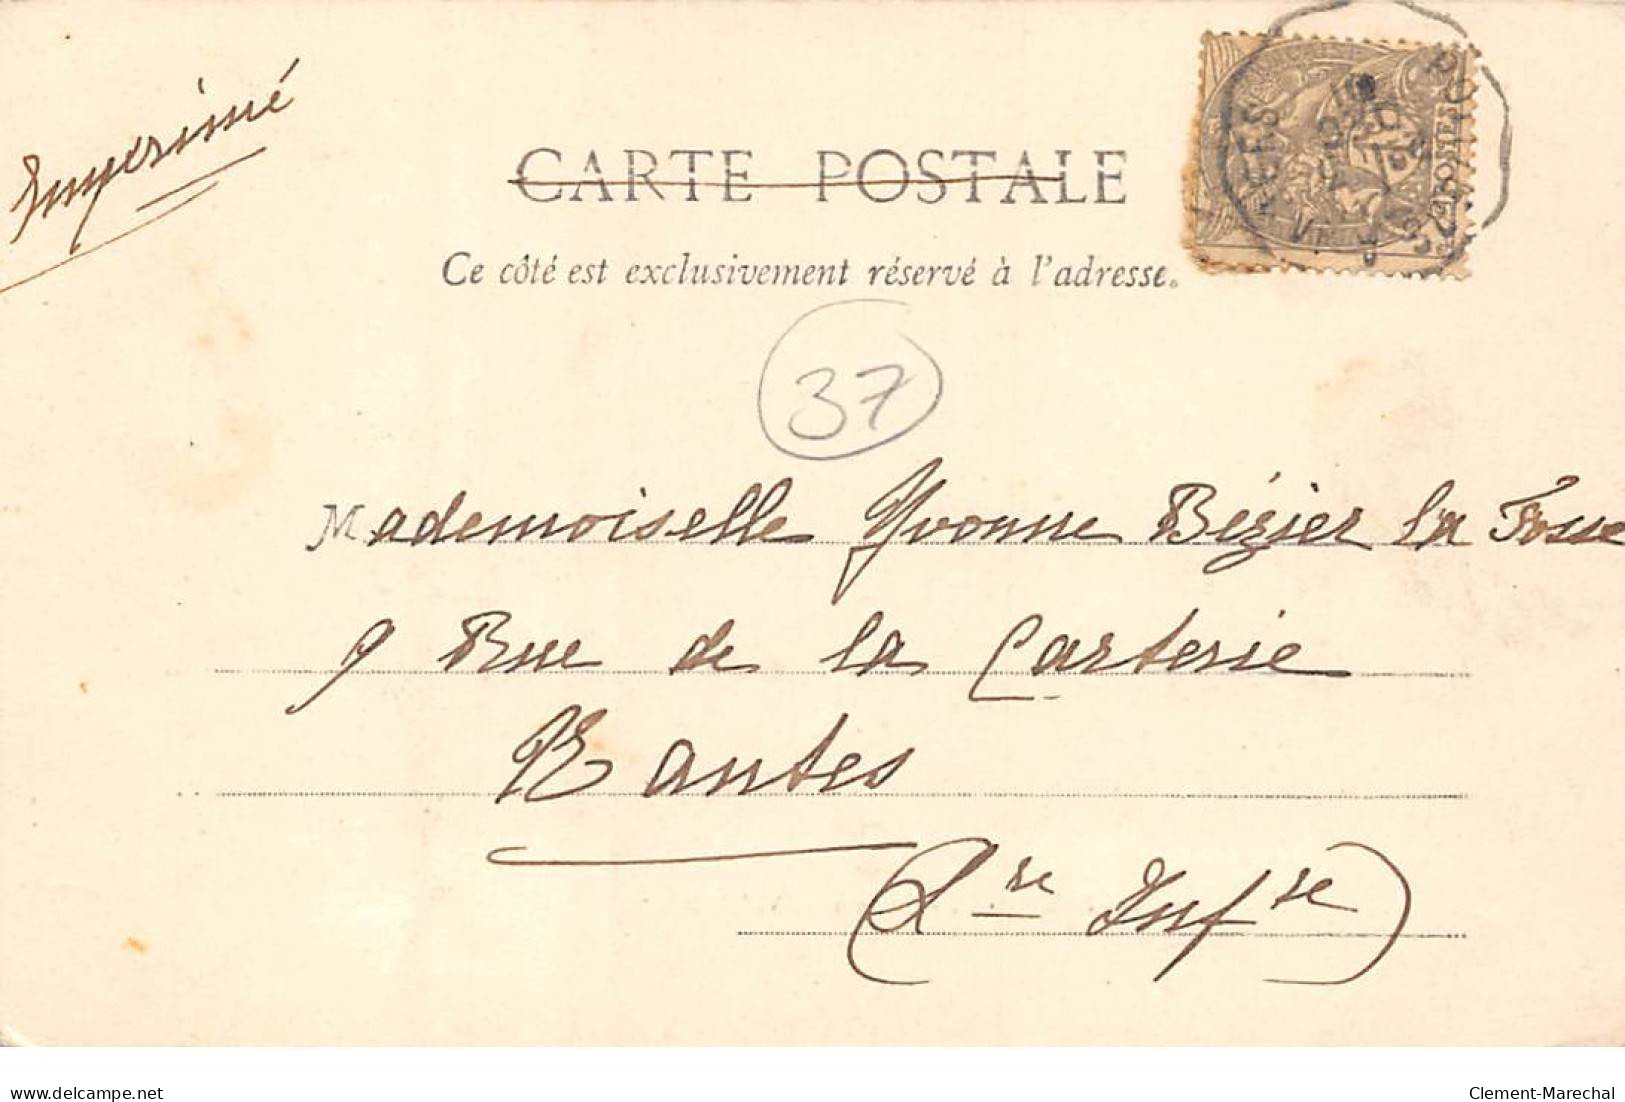 Imprimé
CARTE POSTALE
Ce côté est exclusivement réservé à l'adresse.
37
Mademoiselle Yvonne Bézier la Fosse
9 Rue de la Carterie
Nantes
(Lre Infse)
delcampe.net
Clement-Marechal